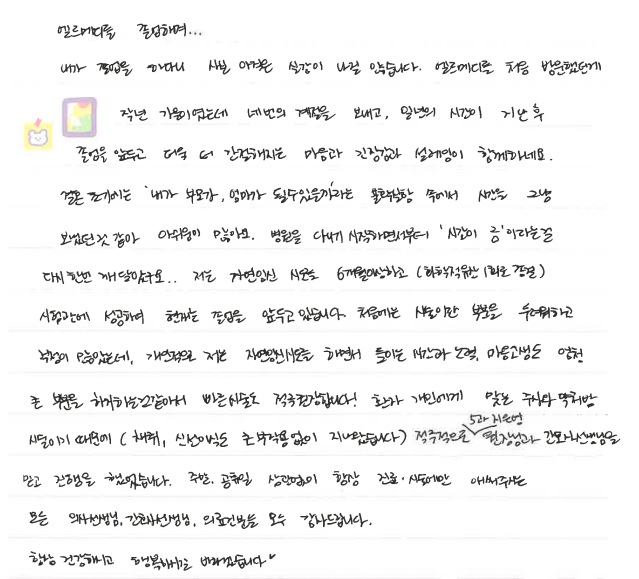 엘르메디를 졸업하며...
내가 졸업을 하다니 사실 아직은 실감이 나질 않습니다. 엘르메디를 처음 방문했던게
작년 가을이었는데 네번의 계절을 보내고, 일년의 시간이 지난 후
졸업을 앞두고 더욱 더 간절해지는 마음과 긴장감과 설레임이 함께하네요.
결혼 초기에는 '내가 부모가, 엄마가 될수있을까'라는 불확실함 속에서 시간을 그냥
보냈던것 같아 아쉬움이 많아요. 병원을 다니기 시작하면서부터 '시간이 금'이라는걸
다시한번 깨달았구요.. 저는 자연임신 시도도 6개월이상하고 (화학적유산 1회로 종결)
시험관에 성공하여 현재는 졸업을 앞두고 있습니다. 처음에는 시술이란 부분을 두려워하고
걱정이 많았는데, 개인적으로 저는 자연임신시도를 하면서 들이는 시간과 노력, 마음고생도 엄청
큰 부분을 차지하는것같아서 빠른시술도 적극권장합니다! 환자 개인에게 맞는 주사와 약처방
시술이기 때문에 (채취, 신선이식도 큰 부작용없이 지나갔습니다) 적극적으로 원장님과 간호사선생님을
5과 지은영
믿고 진행을 했었습니다. 주말, 공휴일 상관없이 항상 진료·시술에만 애써주시는
모든 의사선생님, 간호사선생님, 의료진분들 모두 감사드립니다.
항상 건강하시고 행복하시길 바라겠습니다